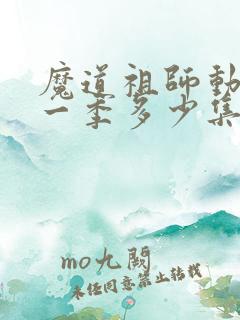 魔道祖师動
一季多少集
mo九閲
未经同意禁止转载